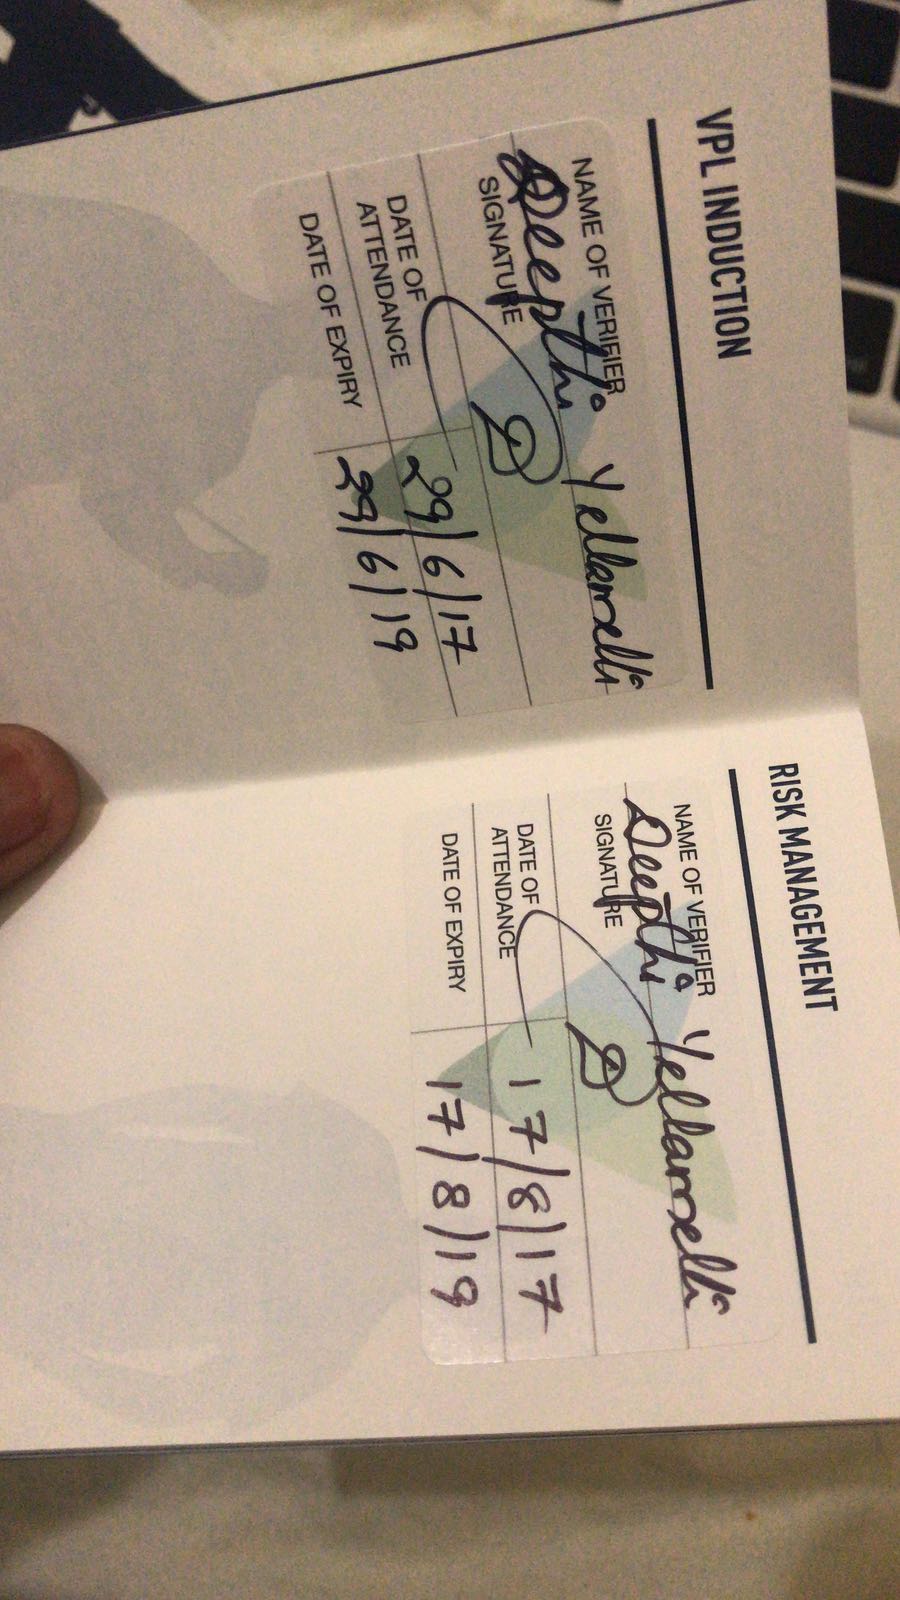 VPL INDUCTION
NAME OF VERIFIER
Deepthi Yellamelli
SIGNATURE
DATE OF
ATTENDANCE
29/6/17
DATE OF EXPIRY
29/6/19
RISK MANAGEMENT
NAME OF VERIFIER
Deepthi Yellamelli
SIGNATURE
DATE OF
ATTENDANCE
17/8/17
DATE OF EXPIRY
17/8/19